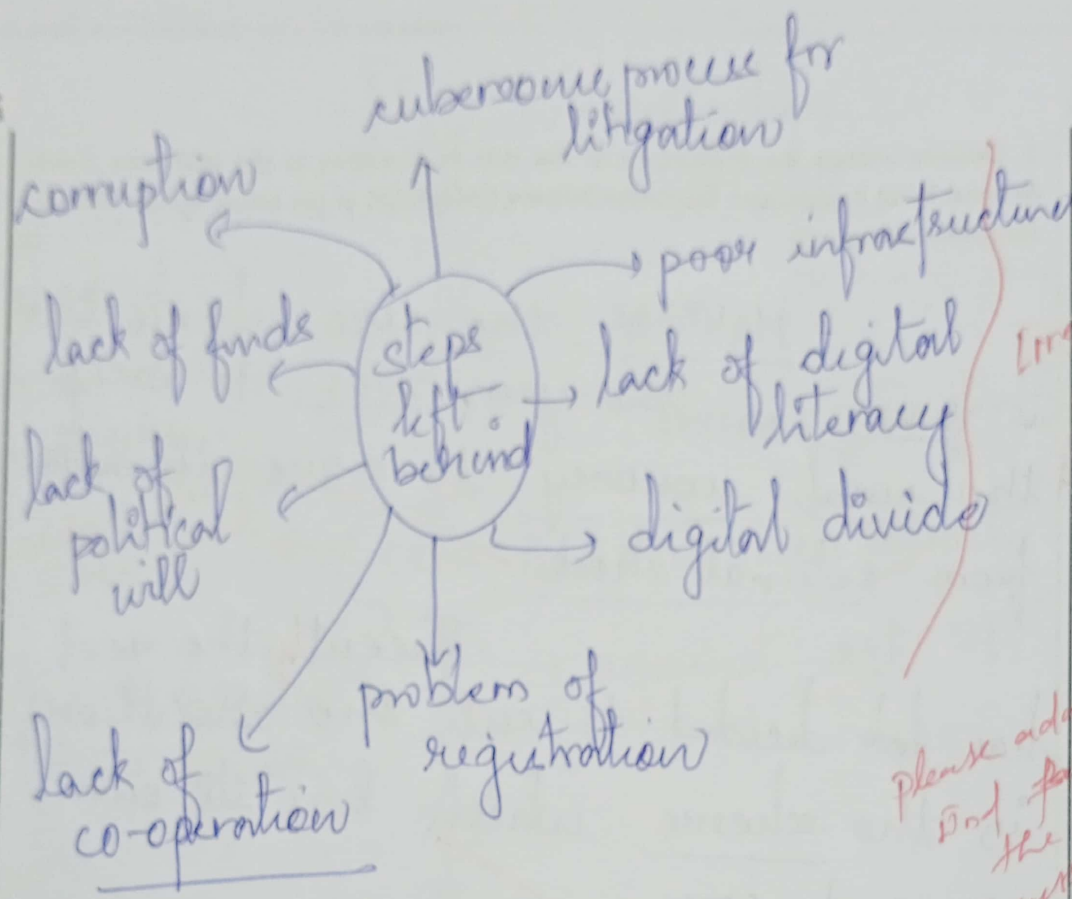 cubersome process for
litigation
corruption
poor infractructure
lack of funds
steps
left
behind
lack of digital
literacy
lack of
political
will
digital divide
problem of
registration
lack of
co-operation
please add
the